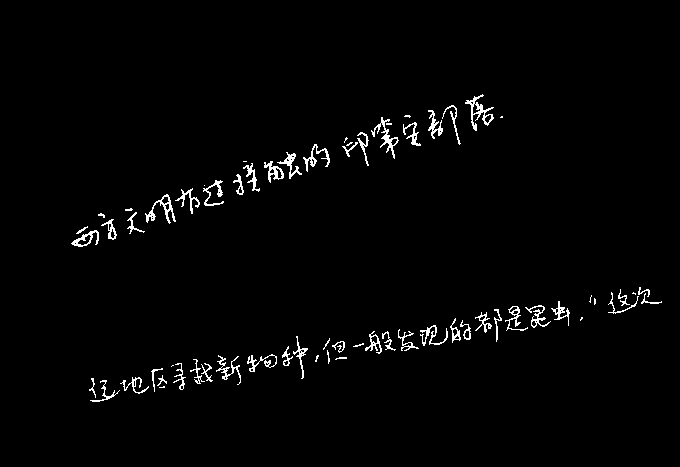 西方文明有过接触的印第安部落.
这地区寻找新物种,但一般发现的都是昆虫."这次